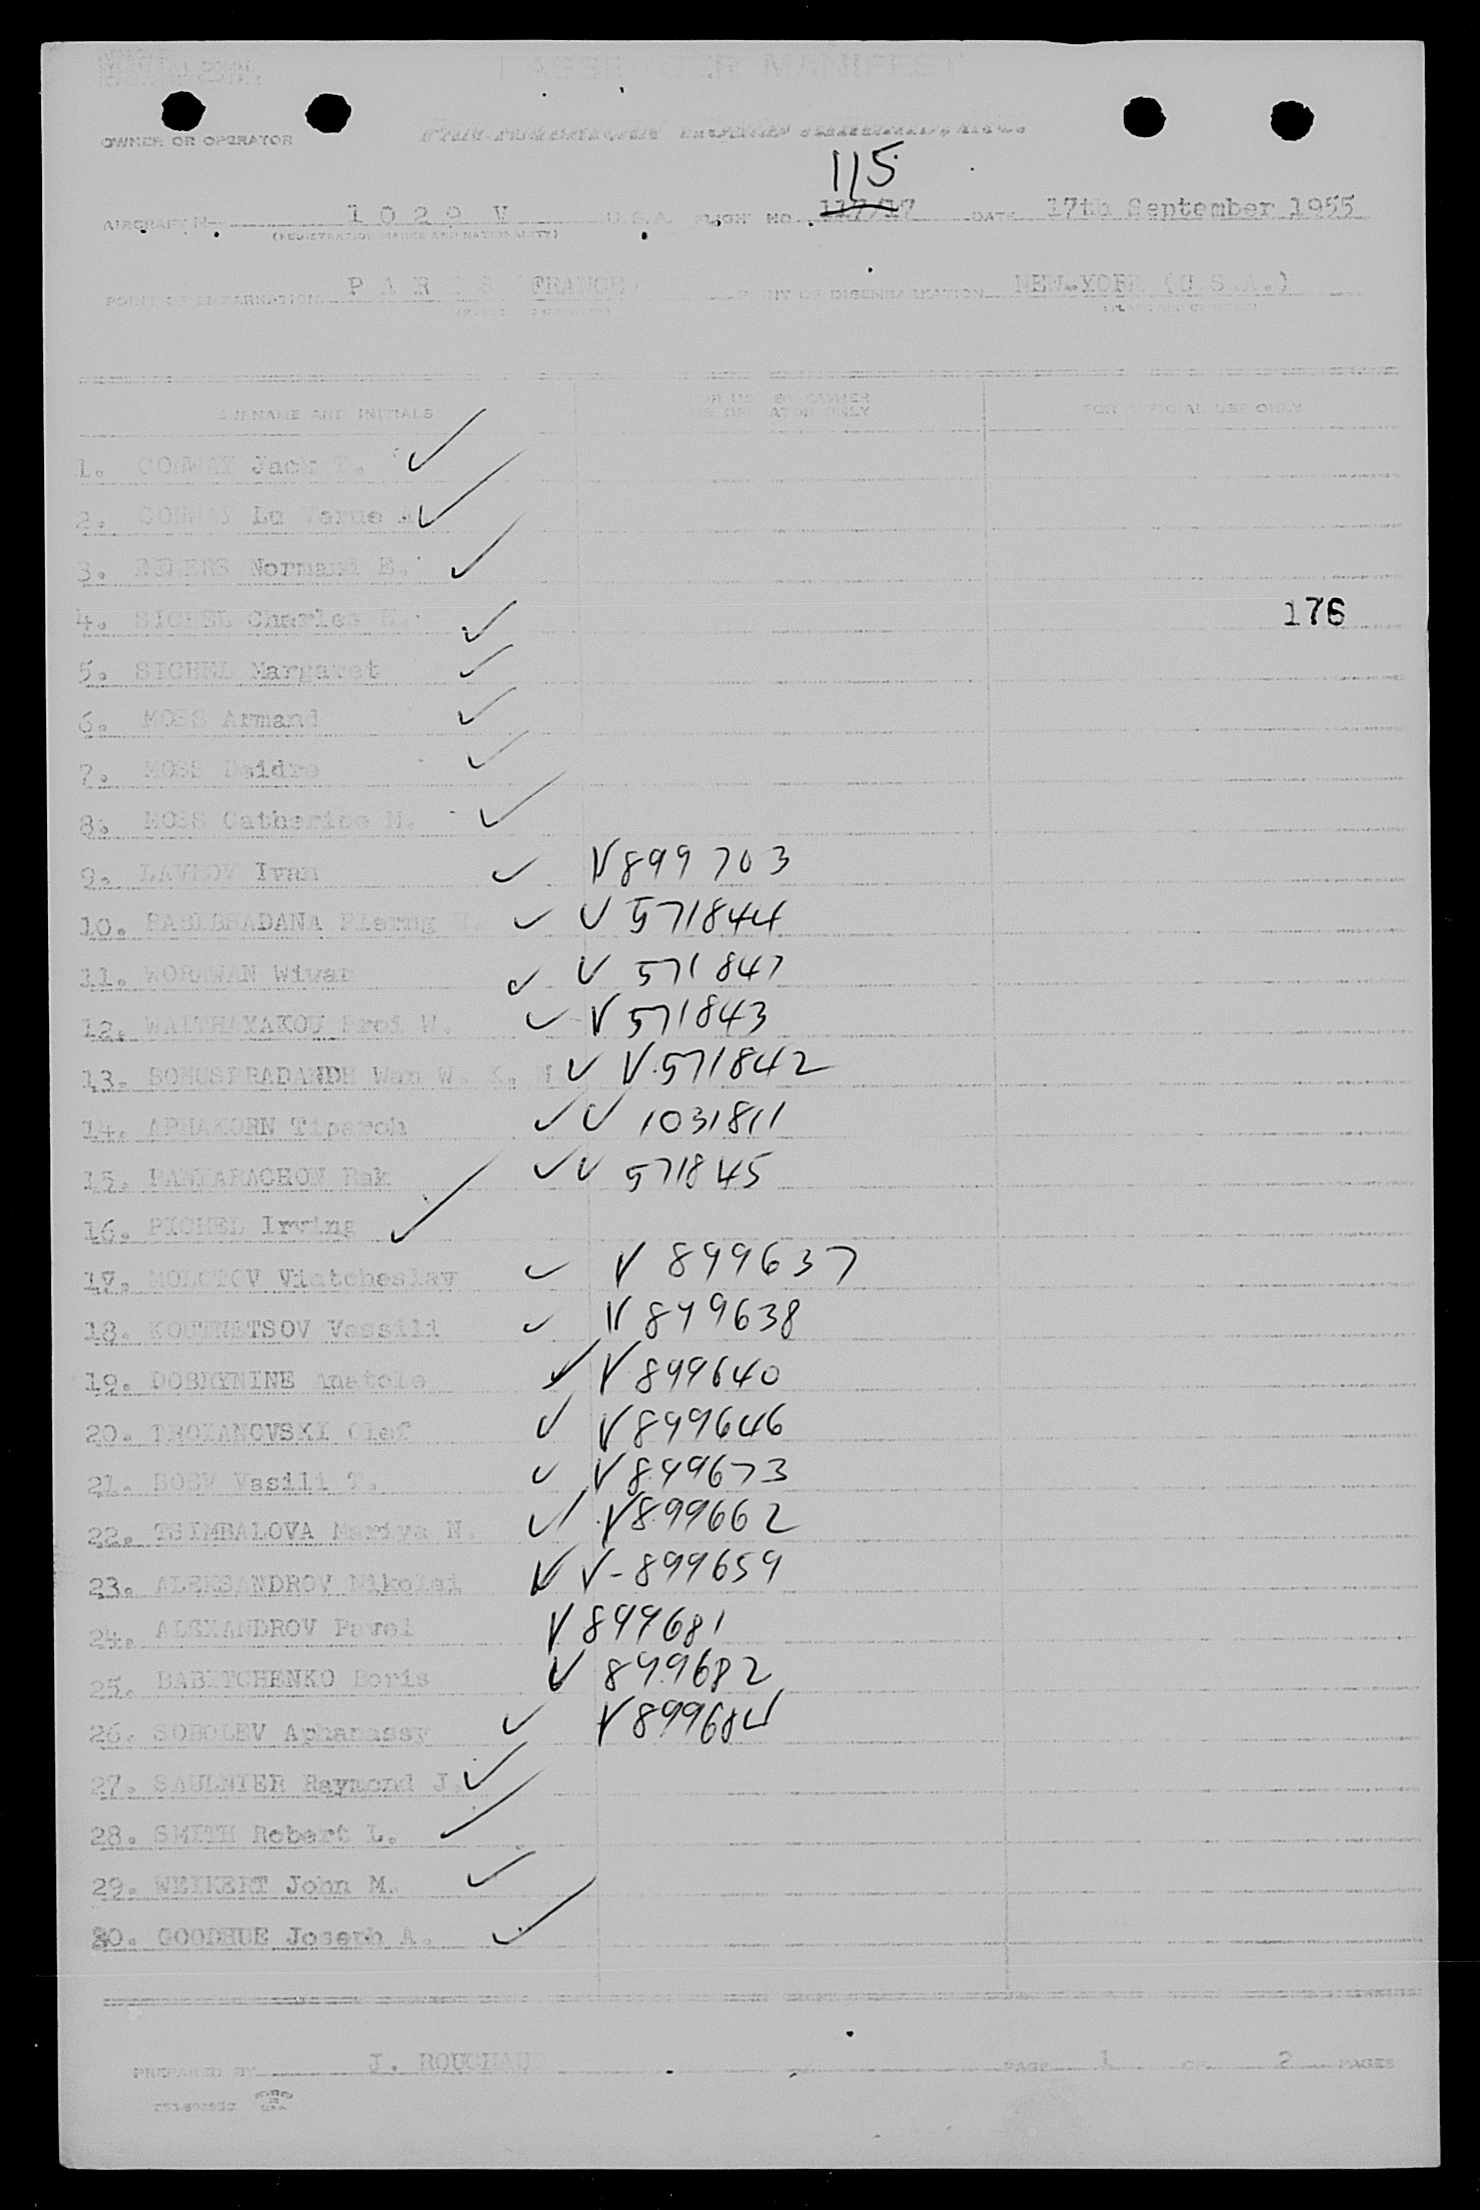 PASSENGER MANIFEST
OWNER OR OPERATOR
115
AIRCRAFT 1 0 2 9 V U.S.A. FLIGHT NO. 117/17 DATE 17th September 1955
(REGISTRATION MARKS AND NATIONALITY)
POINT OF EMBARKATION P A R I S (FRANCE) POINT OF DISEMBARKATION NEW-YORK (U.S.A.)
SURNAME AND INITIALS FOR USE BY OWNER OR OPERATOR ONLY FOR OFFICIAL USE ONLY
1. CONWAY Jack ✓
2. CONWAY La Verne ✓
3. Normand E. ✓
4. SICHEL Charles ✓ 176
5. SICHEL Margaret ✓
6. MOSS Armand ✓
7. MOSS Deidre ✓
8. MOSS Catherine M. ✓
9. Ivan ✓ V899703
10. ✓ V 571844
11. WORAWAN Wiwan ✓ V 571847
12. ✓ V 571843
13. Wan W. K. ✓ V.571842
14. APHAKORN ✓ V 1031811
15. Rak ✓ V 571845
16. PICHEL Irving ✓
17. MOLOTOV Viatcheslav ✓ V 899637
18. KOUZNETSOV Vassili ✓ V 899638
19. DOBRYNINE Anatole ✓ V 899640
20. TROYANOVSKI Oleg ✓ V899646
21. Vasili T. ✓ V899673
22. TSIMBALOVA Mariya N. ✓ V899662
23. ALEKSANDROV Nikolai ✓ V-899659
24. ALEXANDROV Pavel V 899681
25. BABITCHENKO Boris V 899682
26. SOBOLEV Aphanassy ✓ V899684
27. SAULNIER Raymond J. ✓
28. SMITH Robert L. ✓
29. WEIKERT John M. ✓
30. GOODHUE Joseph A. ✓
PREPARED BY J. ROUCHAU PAGE 1 OF 2 PAGES